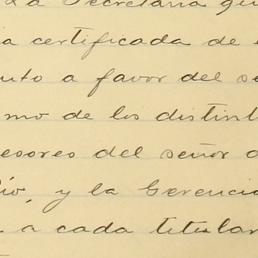 La Secretaría
a certificada de
a favor del
mo de los
esores del señor
y la Gerencia
a cada titular